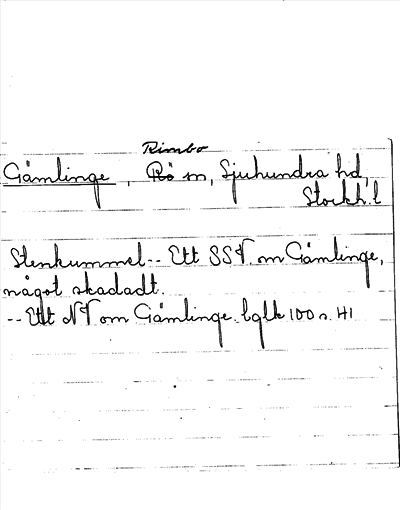 Rimbo
Gåmlinge, Rö sn, Sjuhundra hd,
Stockh. l
Stenkummel-- Ett SSV. om Gåmlinge,
något skadadt.
-- Ett NV om Gåmlinge. lqlk 100 s. 41